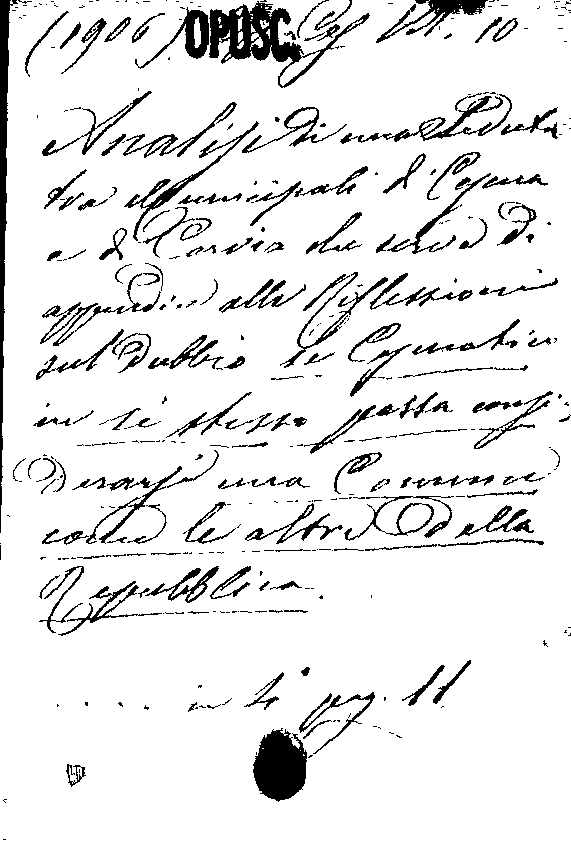 (1906) OPUSC. Cas VII. 10
Analisi di una Seduta
tra Municipali di Cesena
e di Cervia che serve di
appendice alle Riflessioni
sul Dubbio se Cesenatico
in se stesso possa consi-
derarsi una Comune
come le altre della
Repubblica.
..... in 4° pag. 11